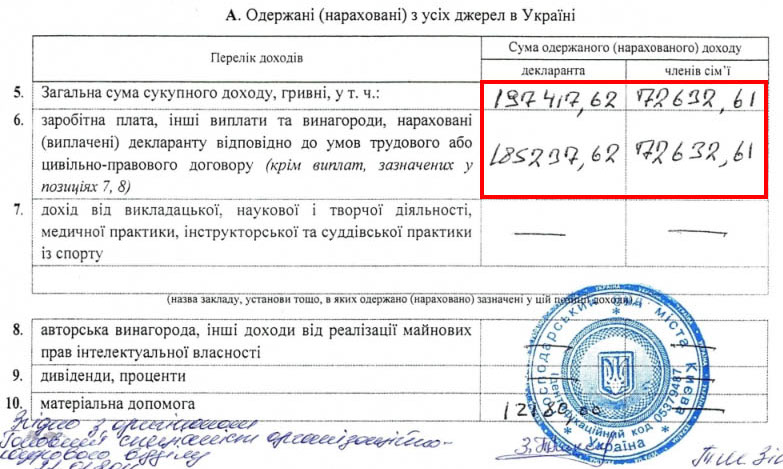 А. Одержані (нараховані) з усіх джерел в Україні
Перелік доходів
Сума одержаного (нарахованого) доходу
декларанта
членів сім’ї
5. Загальна сума сукупного доходу, гривні, у т. ч.: 197417,62 72632,61
6. заробітна плата, інші виплати та винагороди, нараховані
(виплачені) декларанту відповідно до умов трудового або
цивільно-правового договору (крім виплат, зазначених у
позиціях 7, 8)
185237,62 72632,61
7. дохід від викладацької, наукової і творчої діяльності,
медичної практики, інструкторської та суддівської практики
із спорту
(назва закладу, установи тощо, в яких одержано (нараховано) зазначені у цій позиції доходи)
8. авторська винагорода, інші доходи від реалізації майнових
прав інтелектуальної власності
9. дивіденди, проценти
10. матеріальна допомога 12180,00
Господарський суд міста Києва
Ідентифікаційний код 05379487
* Україна *
Згідно з оригіналом
Головний спеціаліст організаційно-
кадрового відділу